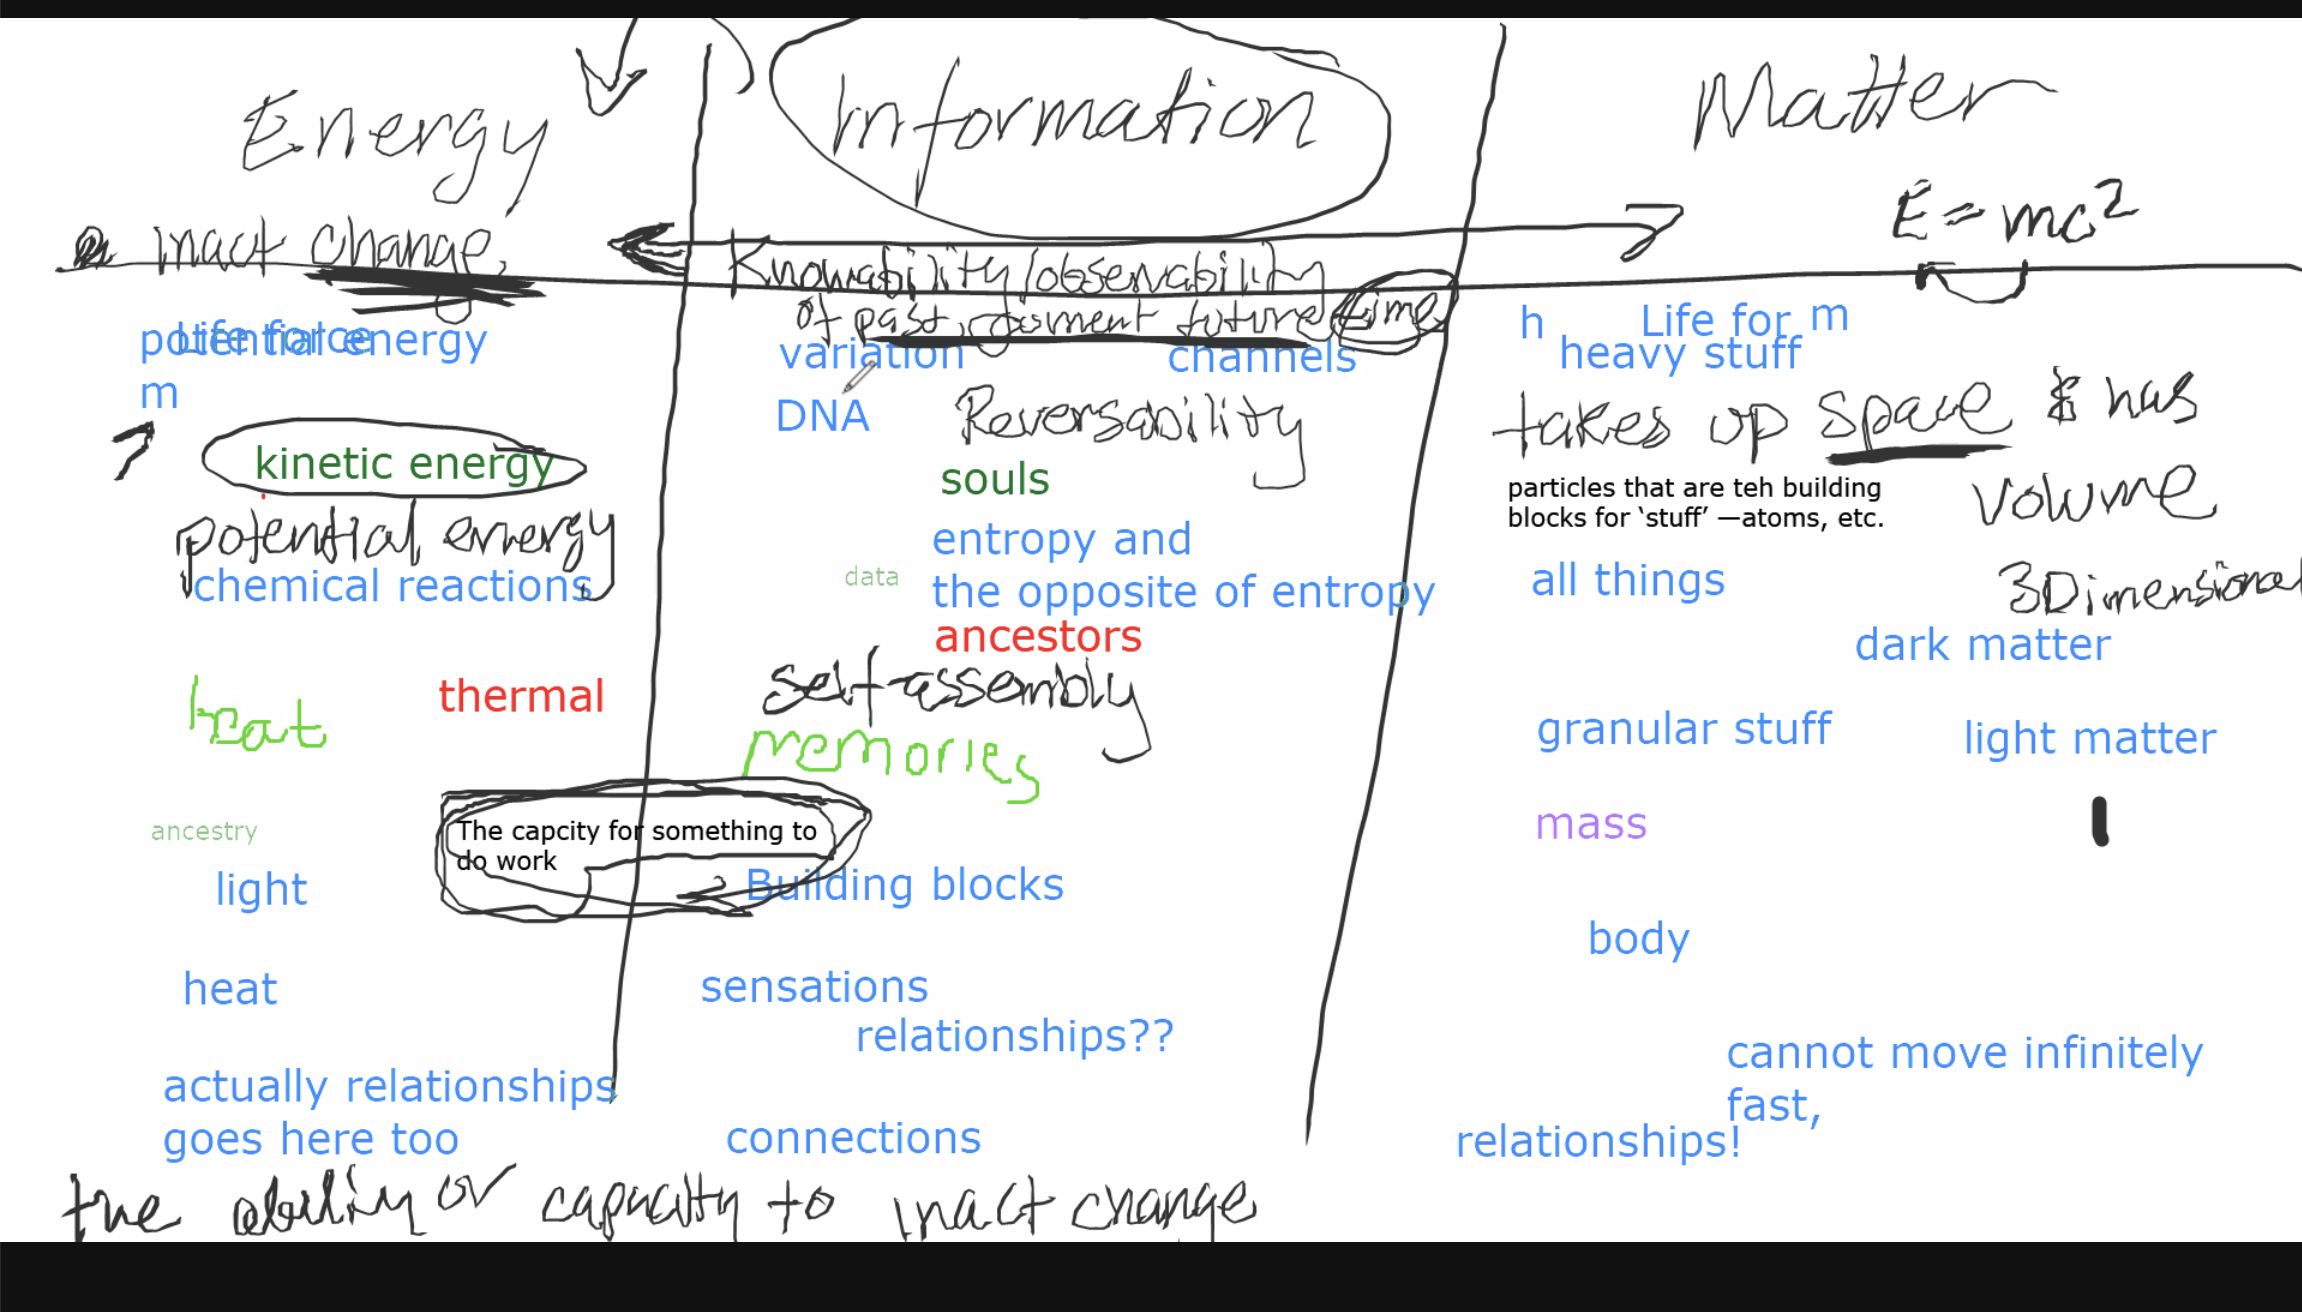 Energy
Information
Matter
E=mc2
inact change,
Knowability/observability
of past, current future time
Life force
potential energy
m
variation
channels
h
Life for m
heavy stuff
DNA
Reversability
takes up space & has
volume
3Dimensional
kinetic energy
potential energy
chemical reactions
souls
entropy and
the opposite of entropy
data
ancestors
self-assembly
memories
particles that are teh building
blocks for ‘stuff’ —atoms, etc.
all things
dark matter
heat
thermal
granular stuff
light matter
The capcity for something to
do work
mass
ancestry
light
Building blocks
body
heat
sensations
relationships??
actually relationships
goes here too
connections
cannot move infinitely
fast,
relationships!
the ability or capacity to inact change